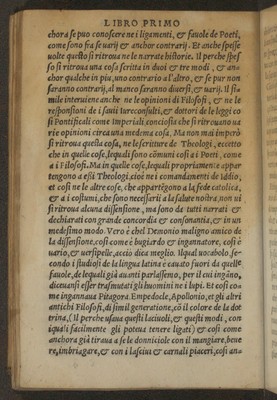 LIBRO PRIMO
chora se puo conoscere ne i ligamenti, & fauole de Poeti,
come sono fra se uarij & anchor contrarij. Et anche spesse
uolte questo si ritroua ne le narrate historie. Il perche spes
so si ritroua una cosa scritta in duoi & tre modi, & an-
chor qualche in piu, uno contrario a l'altro, & se pur non
saranno contrarij, al manco saranno diuersi, & uarij. Il si
mile interuiene anche ne le opinioni di Filosofi, & ne le
responsioni de i saui iureconsulti, & dottori de le leggi co
si Pontificali come Imperiali, conciosia che si ritrouano ua
rie opinioni circa una medema cosa. Ma non mai imperò
si ritroua questa cosa, ne le scritture de Theologi, eccetto
che in quelle cose, lequali sono cōmuni cosi a i Poeti, come
a i Filosofi. Ma in quelle cose, lequali propriamente appar
tengono a essi Theologi, cioè ne i comandamenti de Iddio,
et cosi ne le altre cose, che appartēgono a la fede catolica,
& a i costumi, che sono necessarij a la salute nostra, non ui
si ritroua alcuna dissensione, ma sono da tutti narrati &
dechiarati con grande concordia & consonantia, & in un
medesimo modo. Vero è chel Demonio maligno amico de
la dissensione, cosi come è bugiardo & ingannatore, cosi è
uario, & uersipelle, accio dica meglio. Ilqual uocabolo, se-
condo i studiosi de la lingua latina è cauato fuori da quelle
fauole, de lequali già auanti parlassemo, per il cui ingāno,
diceuansi esser trasmutati gli huomini ne i lupi. Et cosi co
me ingannaua Pitagora. Empedocle, Apollonio, et gli altri
antichi Filosofi, di simil generatione, cō il colore de la dot
trina, (Il perche usaua questi laciuoli, & questi modi, con
iquali facilmente gli poteua tenere ligati) & cosi come
anchora già tiraua a se le donniciole con il mangiare, beue
re, imbriagare, & con i lasciui & carnali piaceri, cosi an-